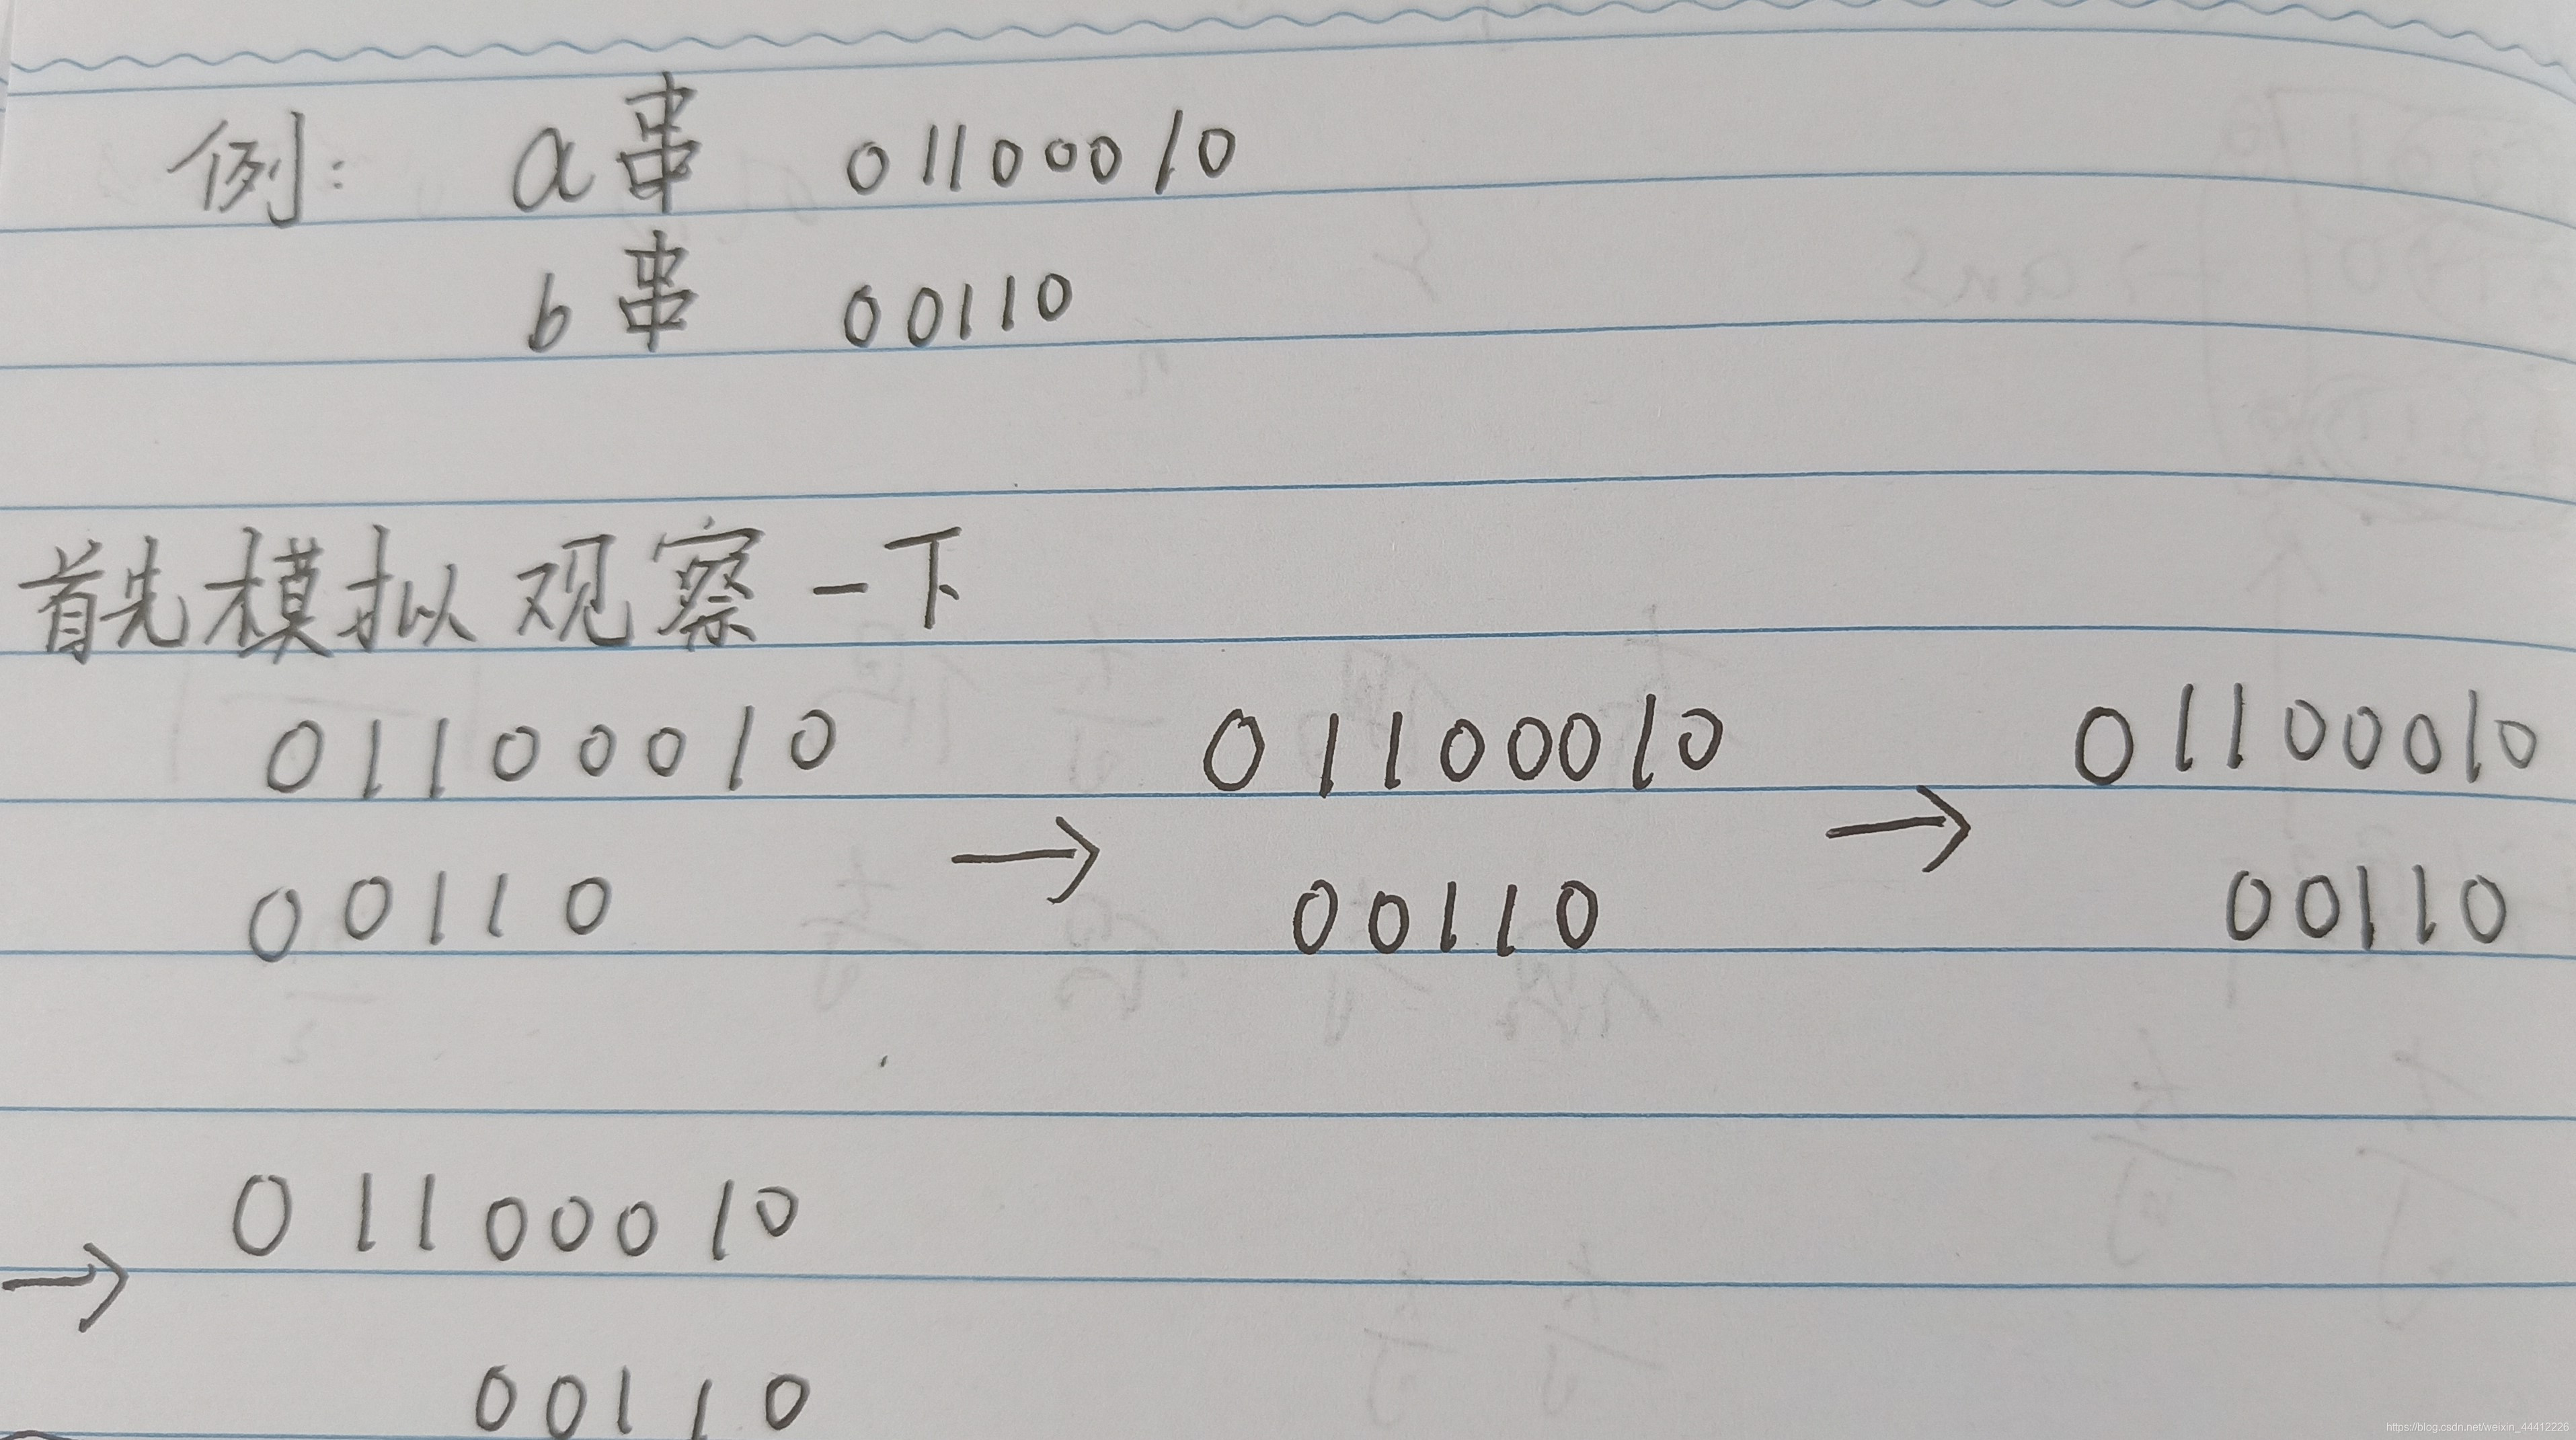 例: a串 01100010
b串 00110
首先模拟观察一下
01100010 → 01100010 → 01100010
00110 00110 00110
→ 01100010
00110
https://blog.csdn.net/weixin_44412226